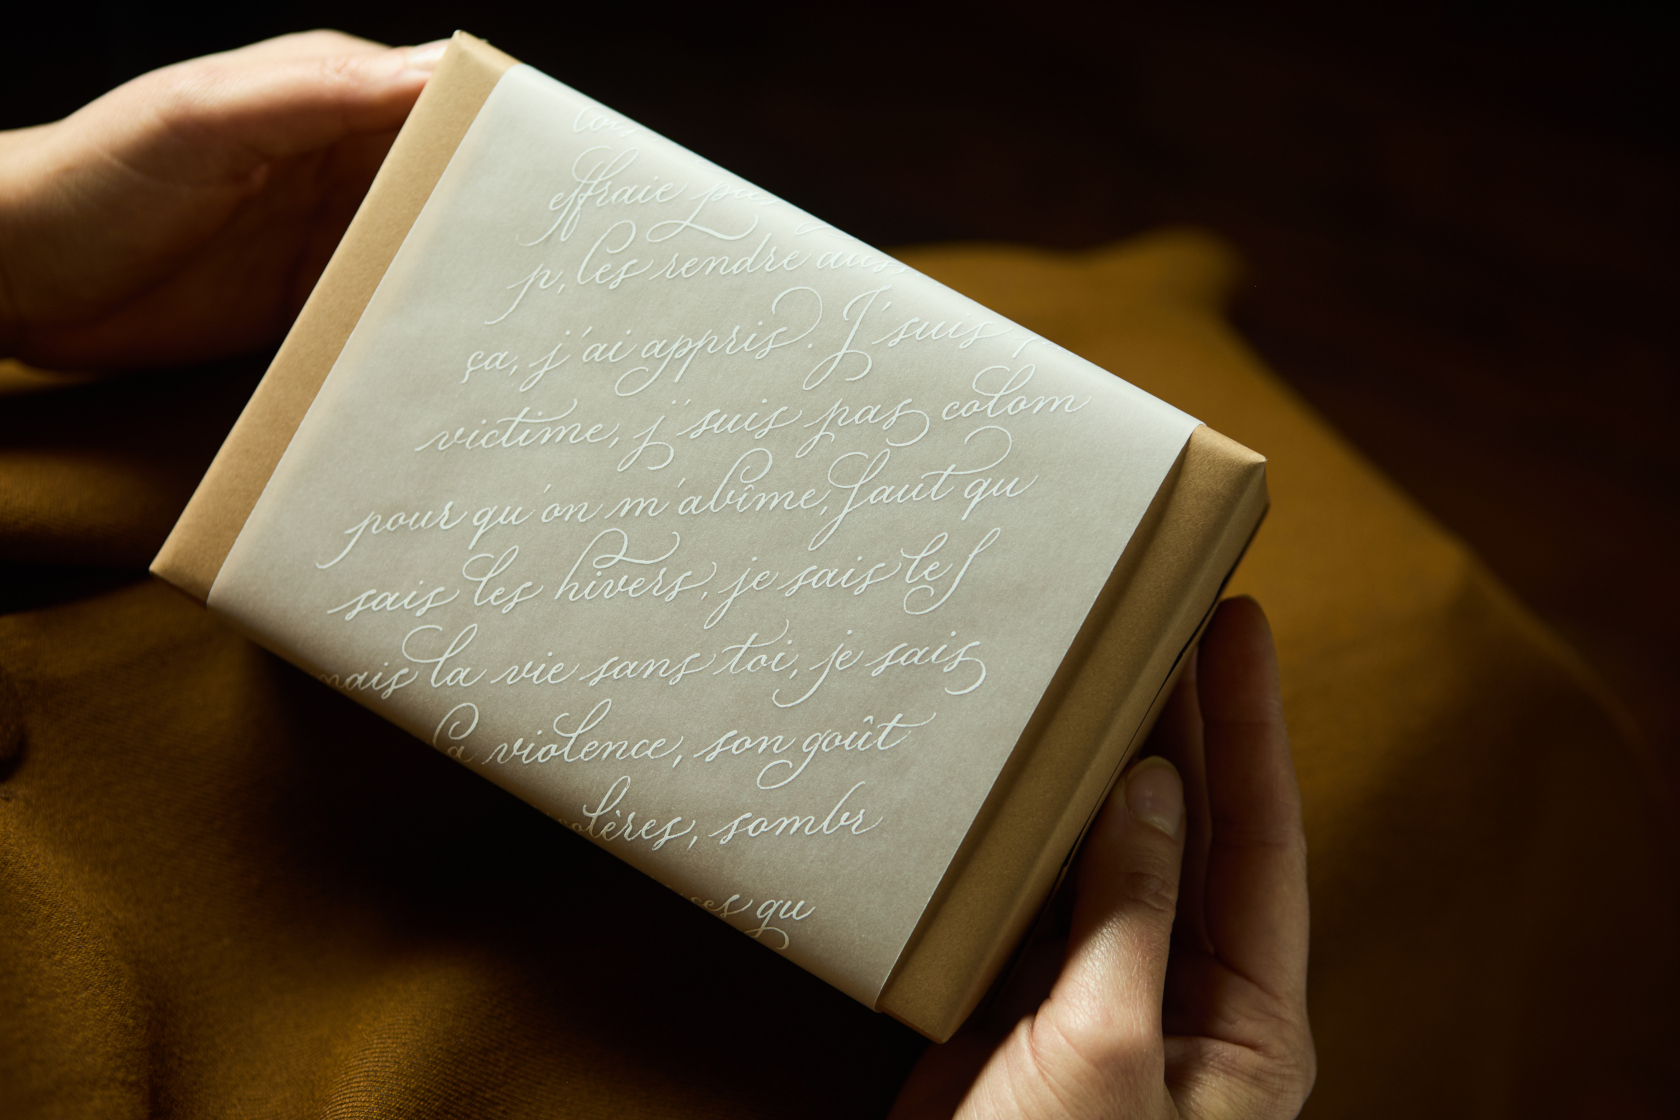 effraie pas
p, les rendre aussi
ça, j'ai appris. J'suis
victime, j'suis pas colom
pour qu'on m'abîme, faut qu
sais les hivers, je sais le f
mais la vie sans toi, je sais
la violence, son goût
colères, sombr
qu